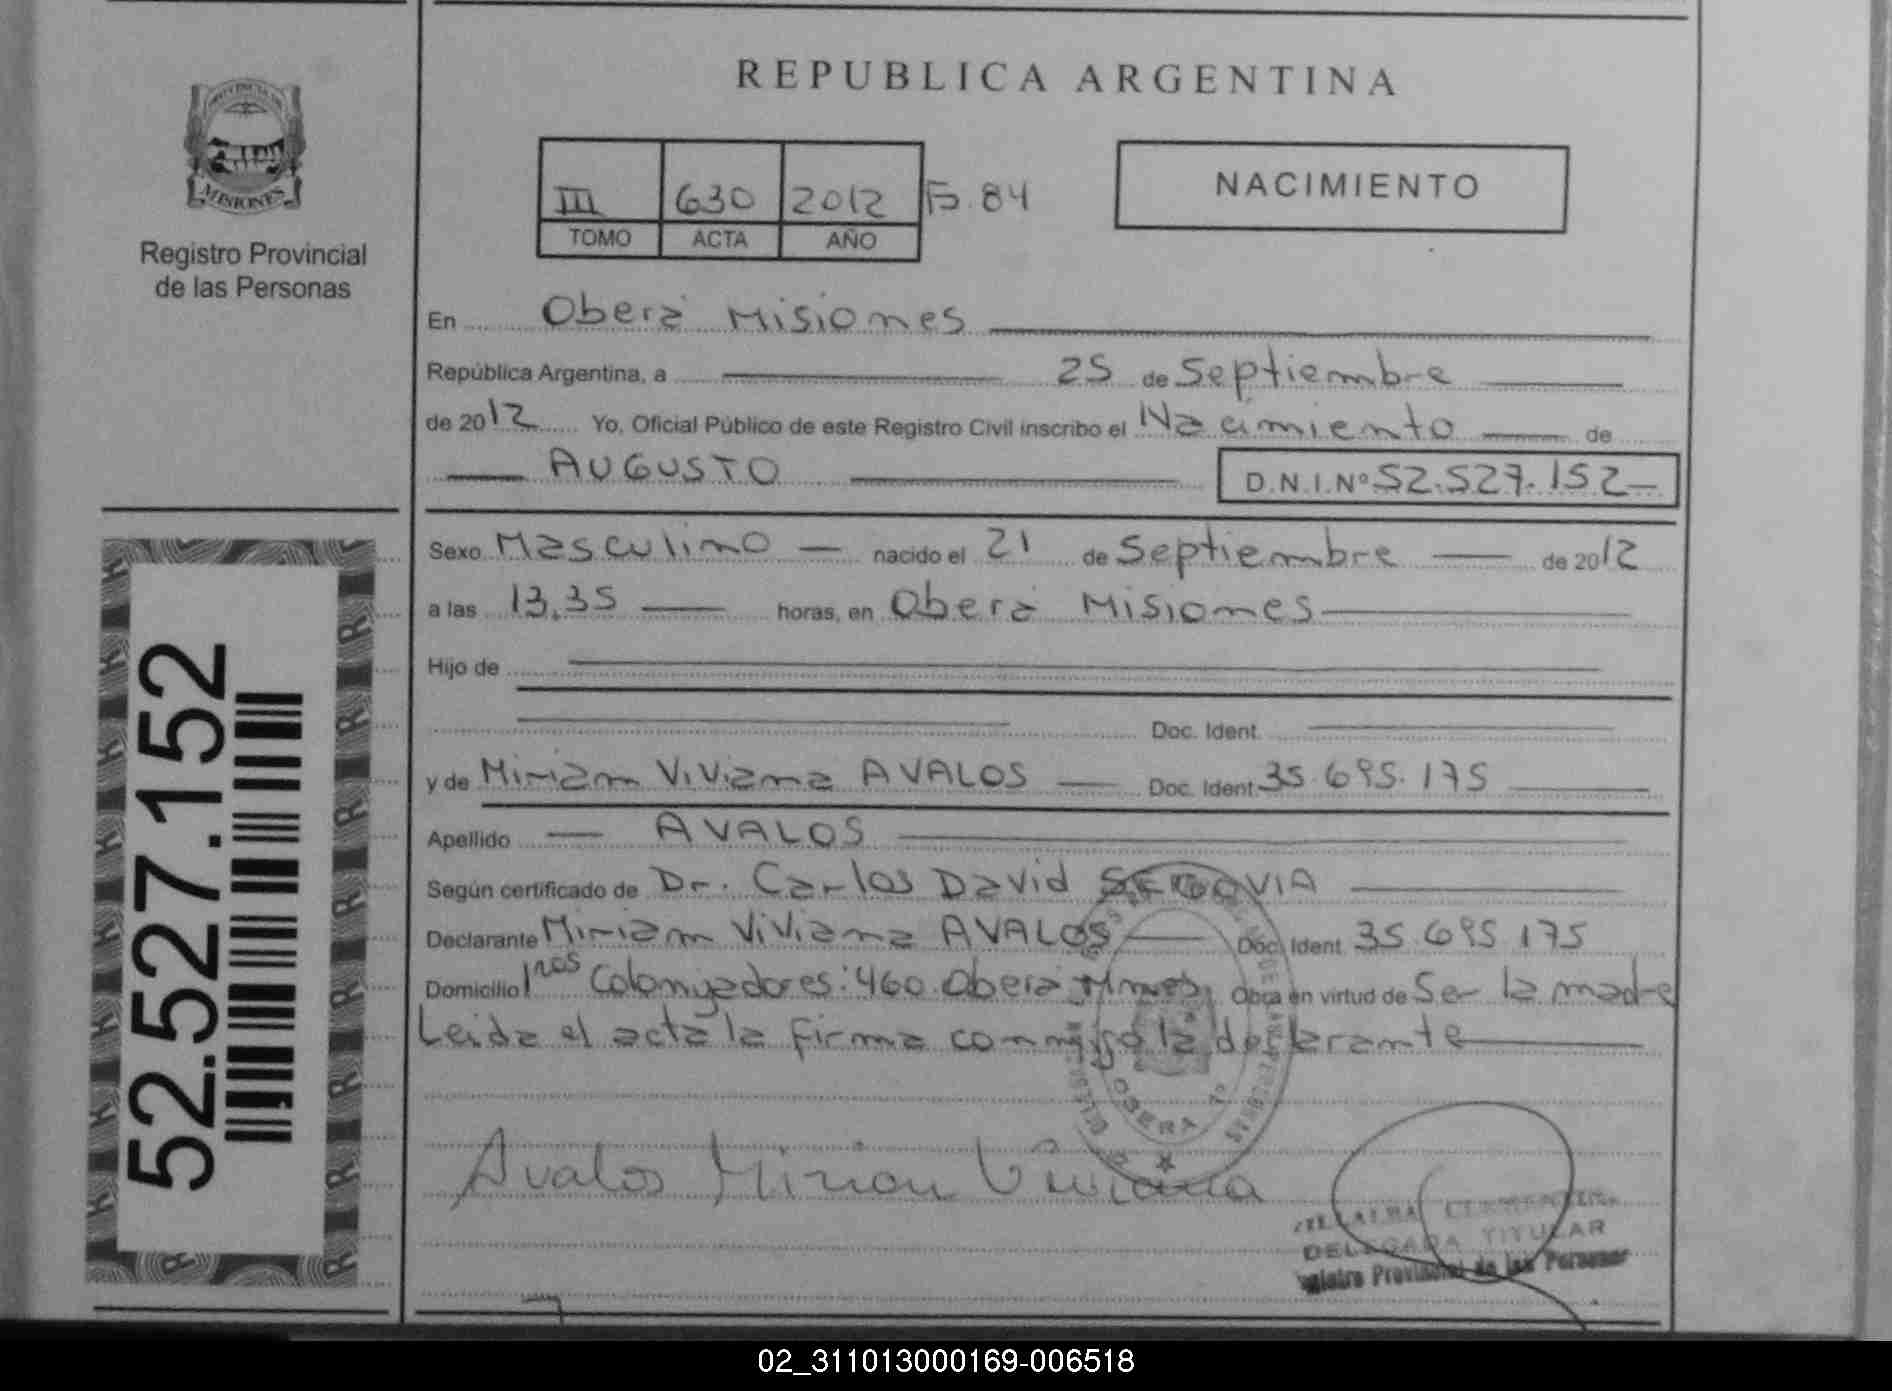 PROVINCIA DE
MISIONES
Registro Provincial
de las Personas
REPUBLICA ARGENTINA
III 630 2012 Fº. 84
TOMO ACTA AÑO
NACIMIENTO
En Oberá Misiones
República Argentina, a 25 de Septiembre
de 2012 Yo, Oficial Público de este Registro Civil inscribo el Nacimiento de
AUGUSTO D.N.I.Nº 52.527.152
Sexo Masculino nacido el 21 de Septiembre de 2012
a las 13,35 horas, en Oberá Misiones
Hijo de
Doc. Ident.
y de Miriam Viviana AVALOS Doc. Ident. 35.695.175
Apellido AVALOS
Según certificado de Dr. Carlos David SEGOVIA
Declarante Miriam Viviana AVALOS Doc. Ident. 35.695.175
Domicilio 1ros Colonizadores: 460 Oberá Mnes. Obra en virtud de Ser la madre
Leida el acta la firma conmigo la declarante
OBERA
Avalos Mirian Viviana
DELEGADA TITULAR
Registro Provincial de las Personas
52.527.152
02_311013000169-006518